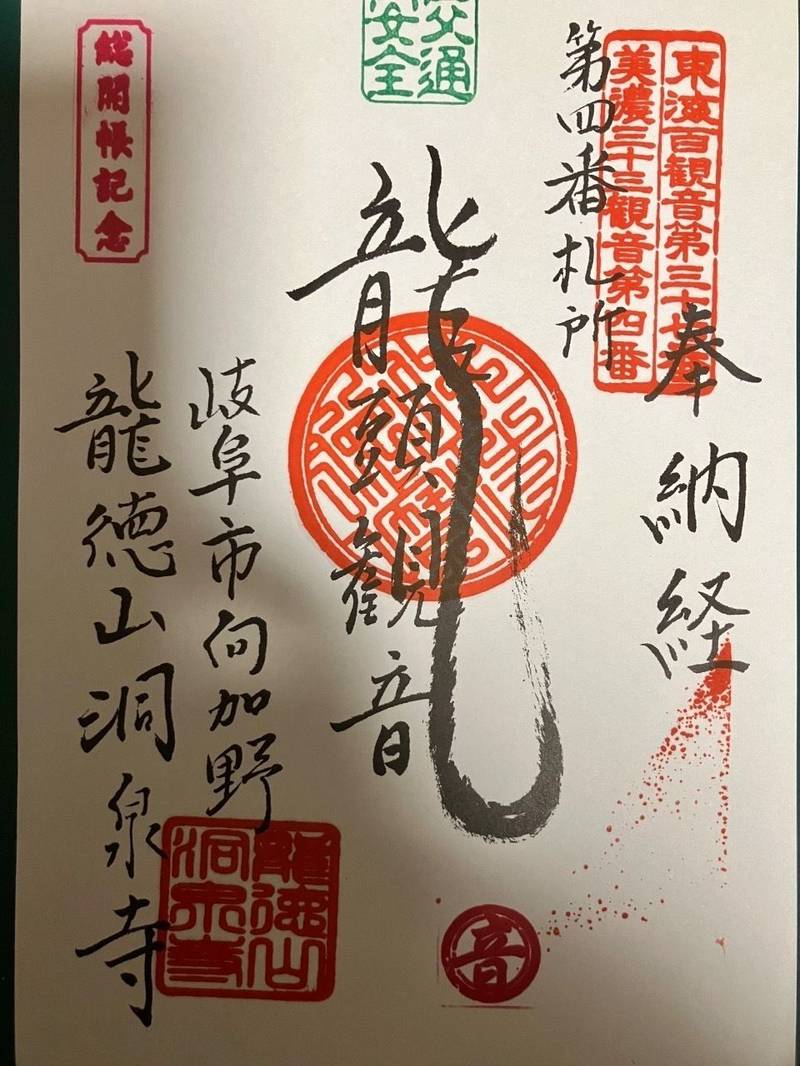 東海百観音第三十七番
美濃三十三観音第四番
奉納経
第四番札所
交通
安全
龍頭観音
岐阜市向加野
龍徳山洞泉寺
総開帳記念
龍徳山
洞泉寺
音